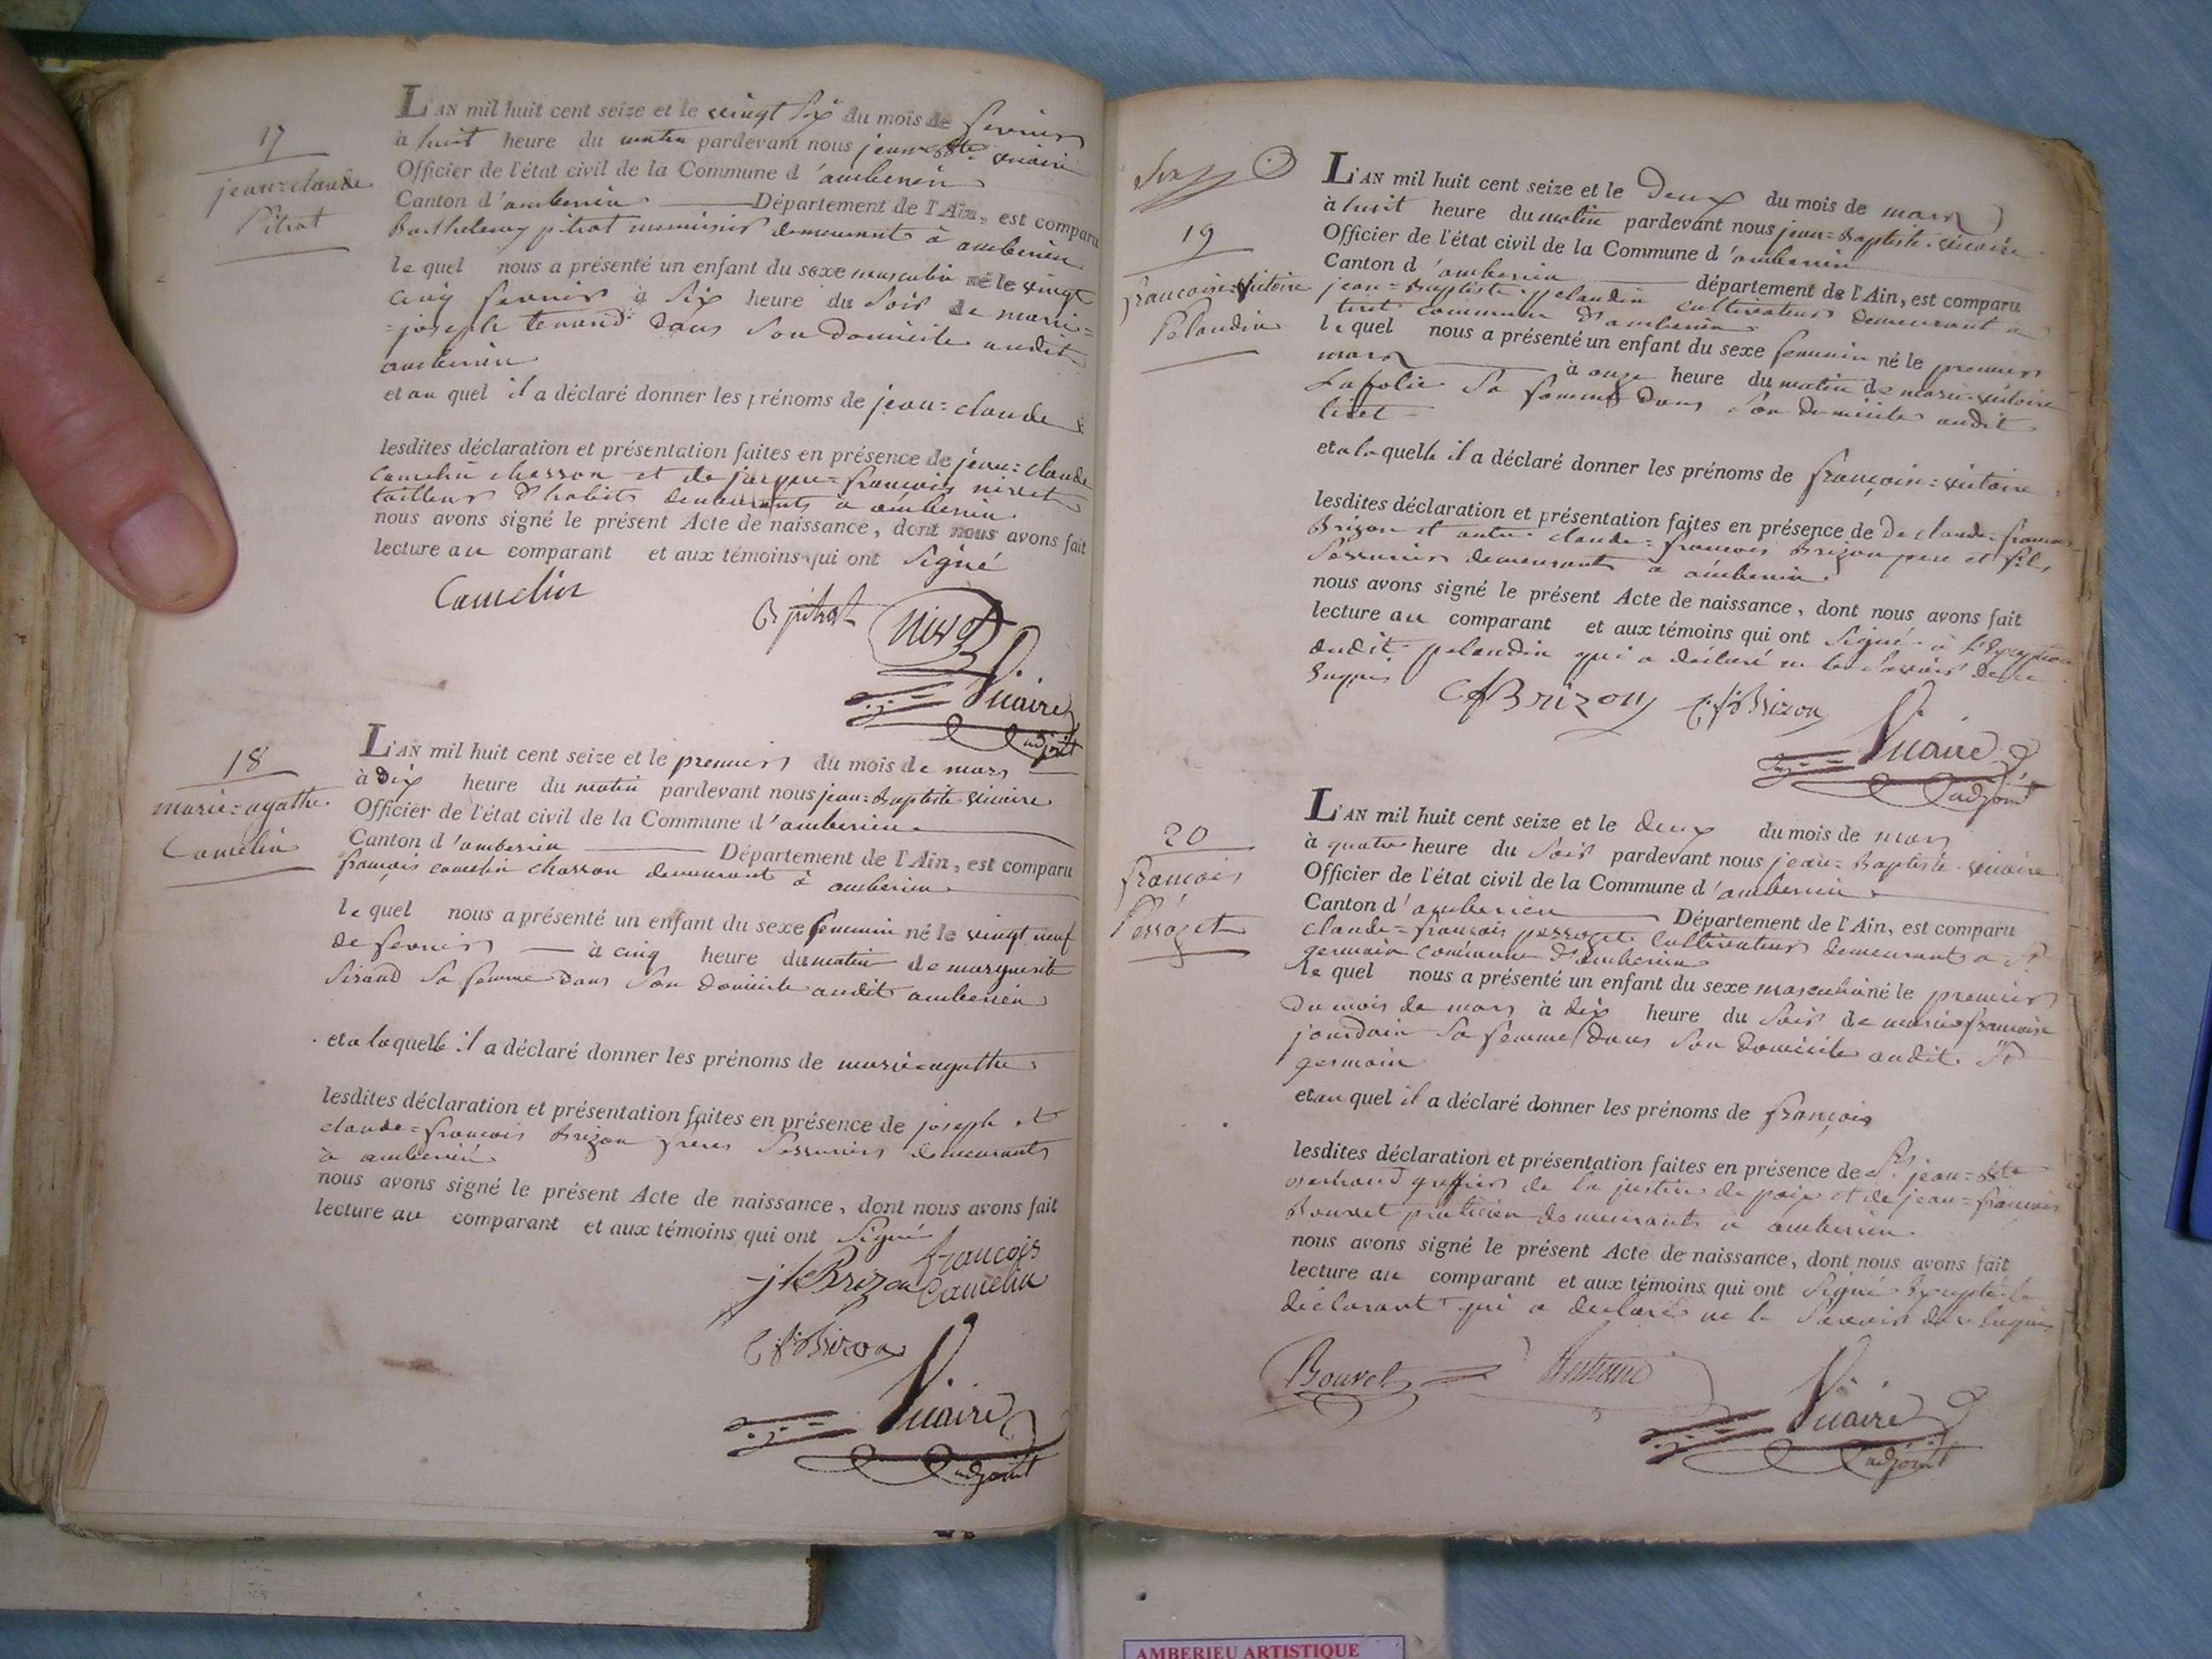 17
jean=claude
Pitrat
L'AN mil huit cent seize et le vingt six du mois de fevrier
à huit heure du matin pardevant nous jean=Bte vicaire
Officier de l'état civil de la Commune d'amberieu
Canton d'amberieu Département de l'Ain, est comparu
Barthelemy pitrat menuisier demeurant à amberieu
le quel nous a présenté un enfant du sexe masculin né le vingt
cinq fevrier à six heure du soir de marie=
=joseph tenand dans son domicile audit
amberieu
et au quel il a déclaré donner les prénoms de jean=claude
lesdites déclaration et présentation faites en présence de jean=claude
camelin charron et de jacque=françois nivet
tailleur d'habits demeurants à amberieu
nous avons signé le présent Acte de naissance, dont nous avons fait
lecture au comparant et aux témoins qui ont signé
Camelin
B pitrat
Nivet
Vicaire
adjoint
18
marie=agathe
Camelin
L'AN mil huit cent seize et le premier du mois de mars
à dix heure du matin pardevant nous jean=Baptiste vicaire
Officier de l'état civil de la Commune d'amberieu
Canton d'amberieu Département de l'Ain, est comparu
françois camelin charron demeurant à amberieu
le quel nous a présenté un enfant du sexe feminin né le vingt neuf
de fevrier à cinq heure du matin de marguerite
sirand sa femme dans son domicile audit amberieu
et a laquelle il a déclaré donner les prénoms de marie=agathe
lesdites déclaration et présentation faites en présence de joseph et
claude=françois Brizon freres serruriers demeurants
à amberieu
nous avons signé le présent Acte de naissance, dont nous avons fait
lecture au comparant et aux témoins qui ont signé
françois
Brizon Camelin
C f Brizon
Vicaire
adjoint
19
francoise=victoire
Pelandin
L'AN mil huit cent seize et le deux du mois de mars
à huit heure du matin pardevant nous jean=Baptiste vicaire
Officier de l'état civil de la Commune d'amberieu
Canton d'amberieu département de l'Ain, est comparu
jean=Baptiste pelandin cultivateur demeurant a
tiret commune d'amberieu
le quel nous a présenté un enfant du sexe feminin né le premier
mars à onze heure du matin de marie=victoire
Lafolie sa femme dans son domicile audit
tiret
et a laquelle il a déclaré donner les prénoms de françoise=victoire
lesdites déclaration et présentation faites en présence de De claude=françois
Brizon et autre claude=françois Brizon pere et fils
serruriers demeurants à amberieu
nous avons signé le présent Acte de naissance, dont nous avons fait
lecture au comparant et aux témoins qui ont signé à l'exception
dudit pelandin qui a déclaré ne le savoir de ce
enquis
C f Brizon C f Brizon
Vicaire
adjoint
20
francois
Perroget
L'AN mil huit cent seize et le deux du mois de mars
à quatre heure du soir pardevant nous jean=Baptiste vicaire
Officier de l'état civil de la Commune d'amberieu
Canton d'amberieu Département de l'Ain, est comparu
claude=françois perroget cultivateur demeurant a St
germain commune d'amberieu
le quel nous a présenté un enfant du sexe masculin né le premier
du mois de mars à dix heure du soir de marie=francoise
jourdain sa femme dans son domicile audit St
germain
et au quel il a déclaré donner les prénoms de françois
lesdites déclaration et présentation faites en présence de Srs jean=Bte
Bertrand greffier de la justice de paix et de jean=françois
Bouvet praticien demeurants à amberieu
nous avons signé le présent Acte de naissance, dont nous avons fait
lecture au comparant et aux témoins qui ont signé excepté le
déclarant qui a declaré ne le savoir de ce enquis
Bouvet Bertrand
Vicaire
adjoint
AMBERIEU ARTISTIQUE